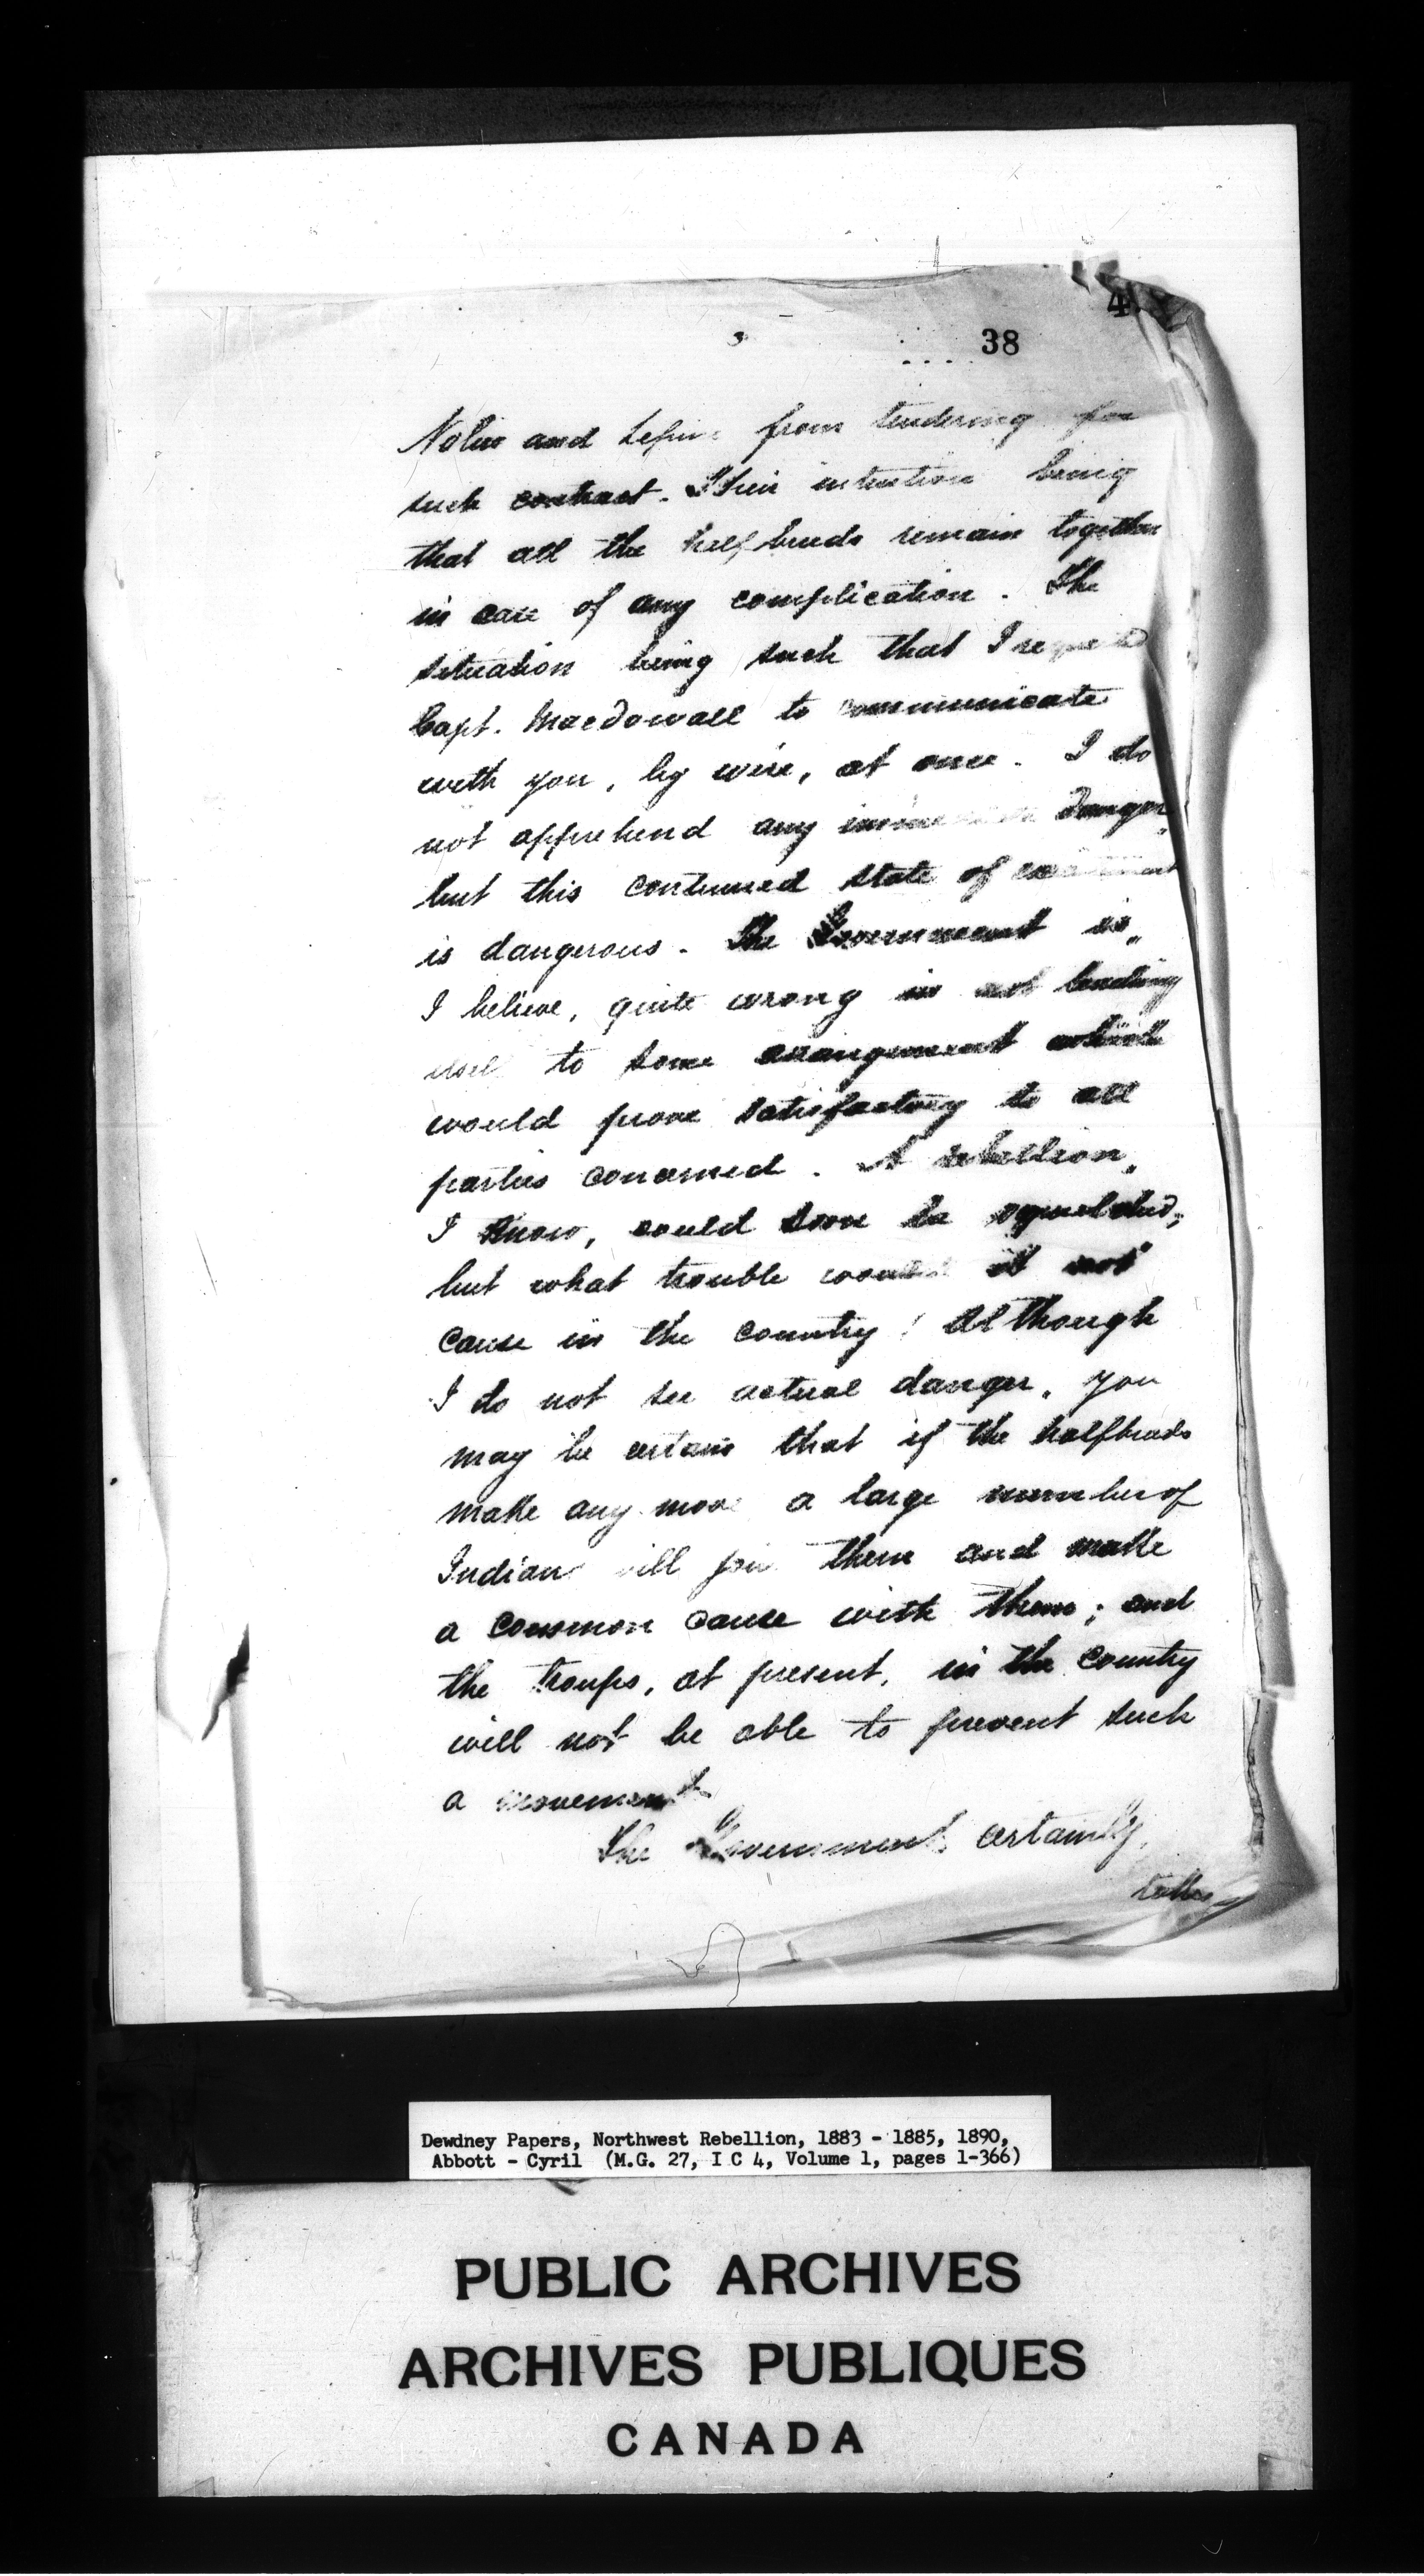 4
38
Nolin and Lepine from tendering for
such contract. Their intention being
that all the half breeds remain together
in case of any complication. The
situation being such that I requested
Capt. MacDowall to communicate
with you, by wire, at once. I do
not apprehend any immediate danger,
but this continued state of excitement
is dangerous. The Government is,
I believe, quite wrong in not lending
itself to some arrangement which
would prove satisfactory to all
parties concerned. A rebellion,
I know, could soon be squelched,
but what trouble would it not
cause in the country! Although
I do not see actual danger, you
may be certain that if the halfbreeds
make any move a large number of
Indians will join them and make
a common cause with them; and
the troops, at present, in the country
will not be able to prevent such
a movement
The Government, certainly,
takes
Dewdney Papers, Northwest Rebellion, 1883 - 1885, 1890,
Abbott - Cyril (M.G. 27, I C 4, Volume 1, pages 1-366)
PUBLIC ARCHIVES
ARCHIVES PUBLIQUES
CANADA